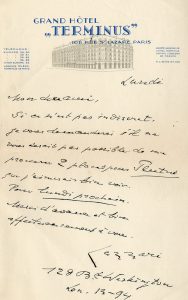 GRAND HÔTEL
„TERMINUS”
108 RUE S^T LAZARE, PARIS
Lundi
Mon cher ami,
Si ce n'est pas indiscret,
je vous demanderai s'il ne
vous serait pas possible de me
procurer 2 places pour
que j'aimerais bien voir.
Pour lundi prochain.
Merci d'avance et bien
affectueusement à vous
Lazzari
128 B^d Washington
13-94